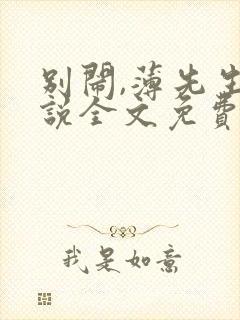 别闹,薄先生
說全文免費
我是如意